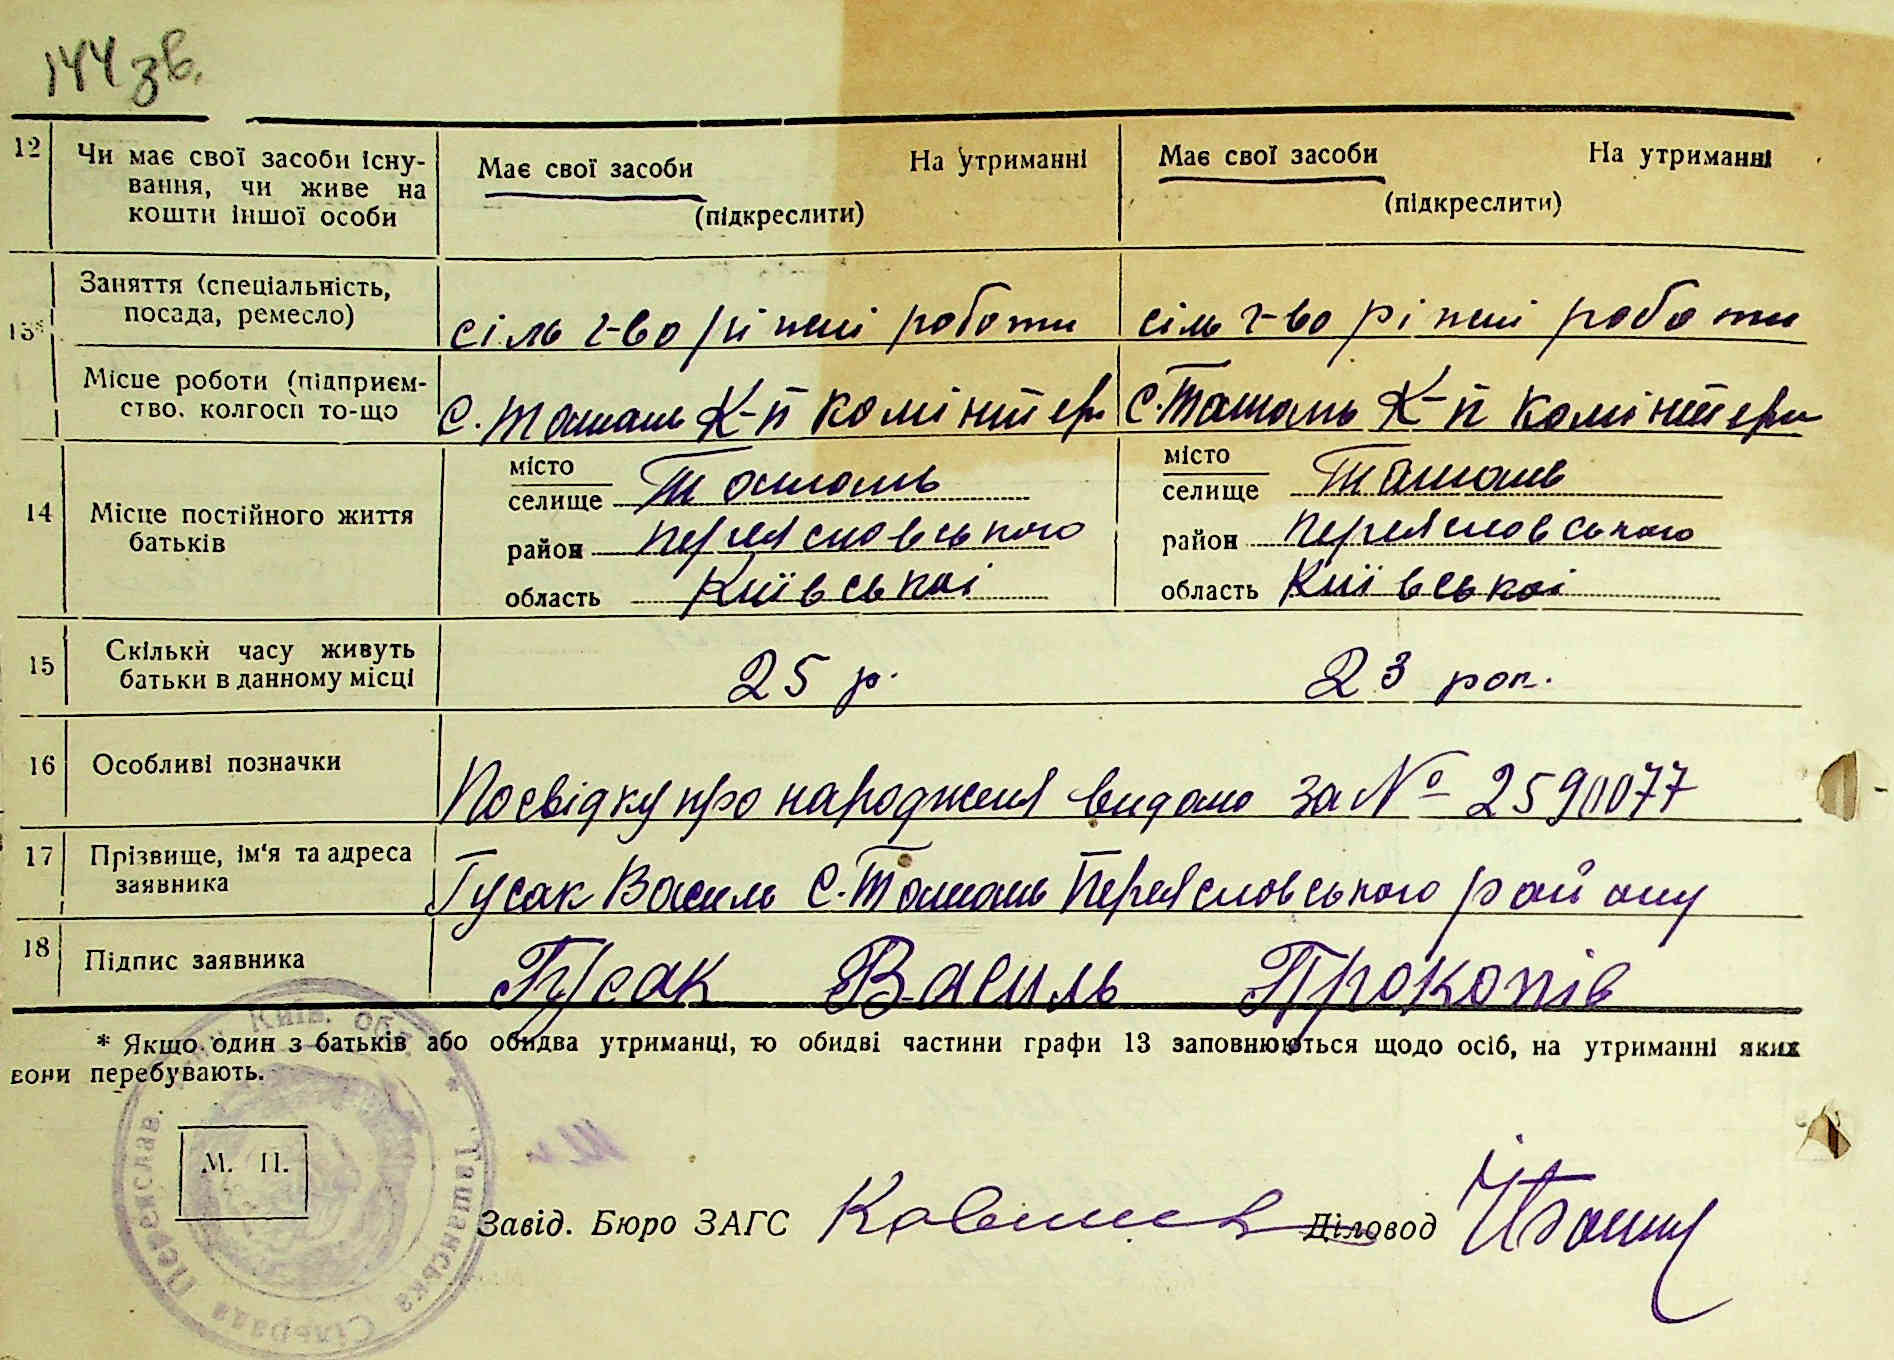 144 зв.
12 Чи має свої засоби існу- Має свої засоби На утриманні Має свої засоби На утриманні
вання, чи живе на
кошти іншої особи (підкреслити) (підкреслити)
13* Заняття (спеціальність,
посада, ремесло) сіль г-во ріжні роботи сіль г-во ріжні роботи
Місце роботи (підприєм-
ство, колгосп то-що С. Ташань К-п комінтерн С. Ташань К-п комінтерн
14 Місце постійного життя
батьків
місто
селище Ташань
район Переясловського
область Київської
місто
селище Ташань
район Переясловського
область Київської
15 Скільки часу живуть
батьки в данному місці 25 р. 23 рок.
16 Особливі позначки Посвідку про народженя видано за № 2590077
17 Прізвище, ім'я та адреса
заявника Гусак Василь С. Ташань Переясловського району
18 Підпис заявника Гусак Василь Прокопів
* Якщо один з батьків або обидва утриманці, то обидві частини графи 13 заповнюються щодо осіб, на утриманні яких
вони перебувають.
М. П.
Завід. Бюро ЗАГС Діловод
Київ. обл. * Ташанська Сільрада Переяслав.